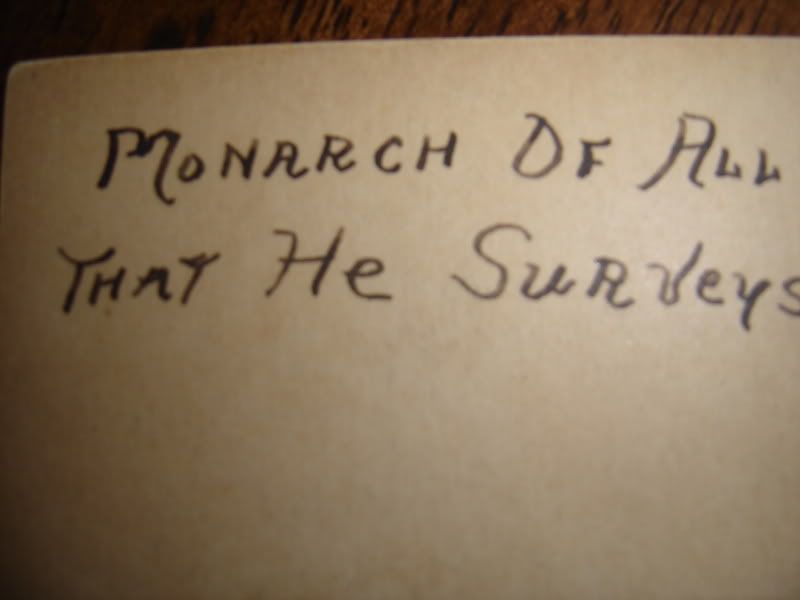 Monarch Of All
That He Surveys